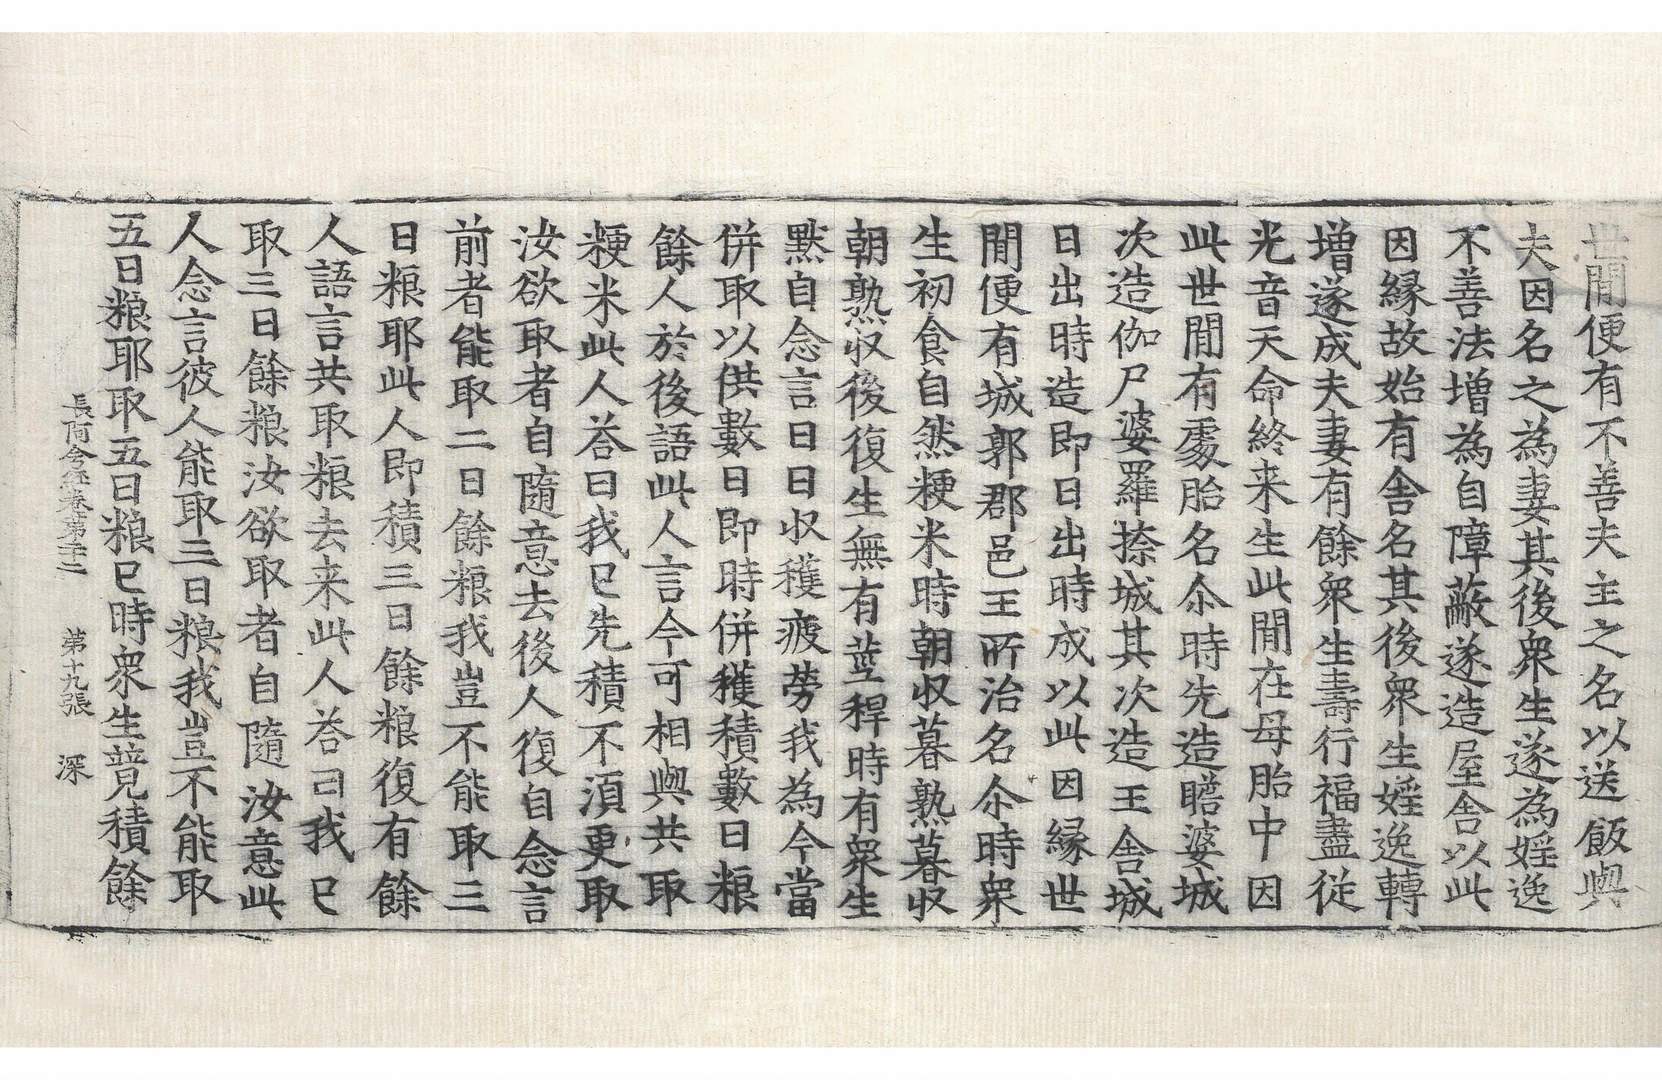 世間便有不善夫主之名以送飯與
夫因名之為妻其後衆生遂為婬逸
不善法增為自障蔽遂造屋舎以此
因縁故始有舎名其後衆生婬逸轉
增遂成夫妻有餘衆生壽行福盡從
光音天命終来生此間在母胎中因
此世間有處胎名尒時先造瞻婆城
次造伽尸婆羅捺城其次造王舎城
日出時造即日出時成以此因縁世
間便有城郭郡邑王所治名尒時衆
生初食自然粳米時朝収暮熟暮収
朝熟収後復生無有莖稈時有衆生
黙自念言日日収穫疲勞我為今當
併取以供數日即時併穫積數日粮
餘人於後語此人言今可相與共取
粳米此人荅曰我已先積不湏更取
汝欲取者自隨意去後人復自念言
前者能取二日餘粮我豈不能取三
日粮耶此人即積三日餘粮復有餘
人語言共取粮去来此人荅曰我已
取三日餘粮汝欲取者自隨汝意此
人念言彼人能取三日粮我豈不能取
五日粮耶取五日粮已時衆生競積餘
長阿含經卷第二十二 第十九張 深